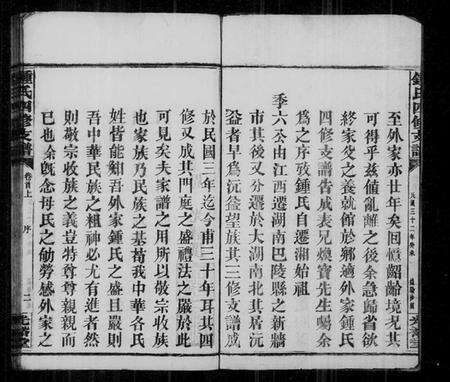 鍾氏四修支譜
民國三十二年癸未
至外家亦廿年矣回憶齠齡境况其
可得乎茲值亂離之後余急歸省欲
終家父之養就館於鄰適外家鍾氏
四修支譜告成表兄煥寶先生囑余
為之序攷鍾氏自遷湖始祖
季六公由江西遷湖南巴陵縣之新牆
市其後又分遷於大湖南北其居沅
益者早為沅益望族其三修支譜成
於民國三年迄今甫三十年耳其四
修又成其門庭之盛禮法之嚴於此
可見矣夫家譜之用所以敬宗收族
也家族乃民族之基苟我中華各氏
姓皆能如吾外家鍾氏之盛且嚴則
吾中華民族之粗神必尤有進者然
則敬宗收族之義豈特尊尊親親而
已也余旣念母氏之劬勞感外家之
鍾氏四修支譜
卷首上
序
二